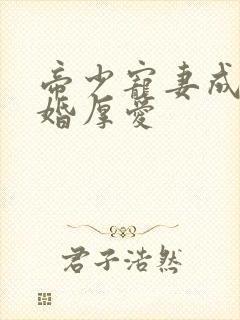 帝少寵妻成
婚厚愛
君子浩然